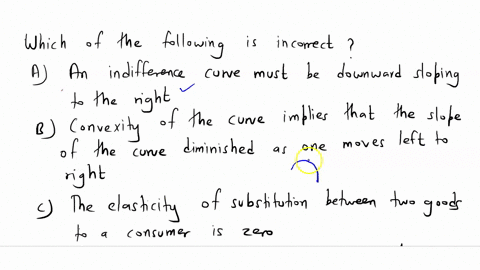 Which of the following is incorrect ?
A) An indifference curve must be downward sloping
to the right
B) Convexity of the curve implies that the slope
of the curve diminished as one moves left to
right
C) The elasticity of substitution between two goods
to a consumer is zero